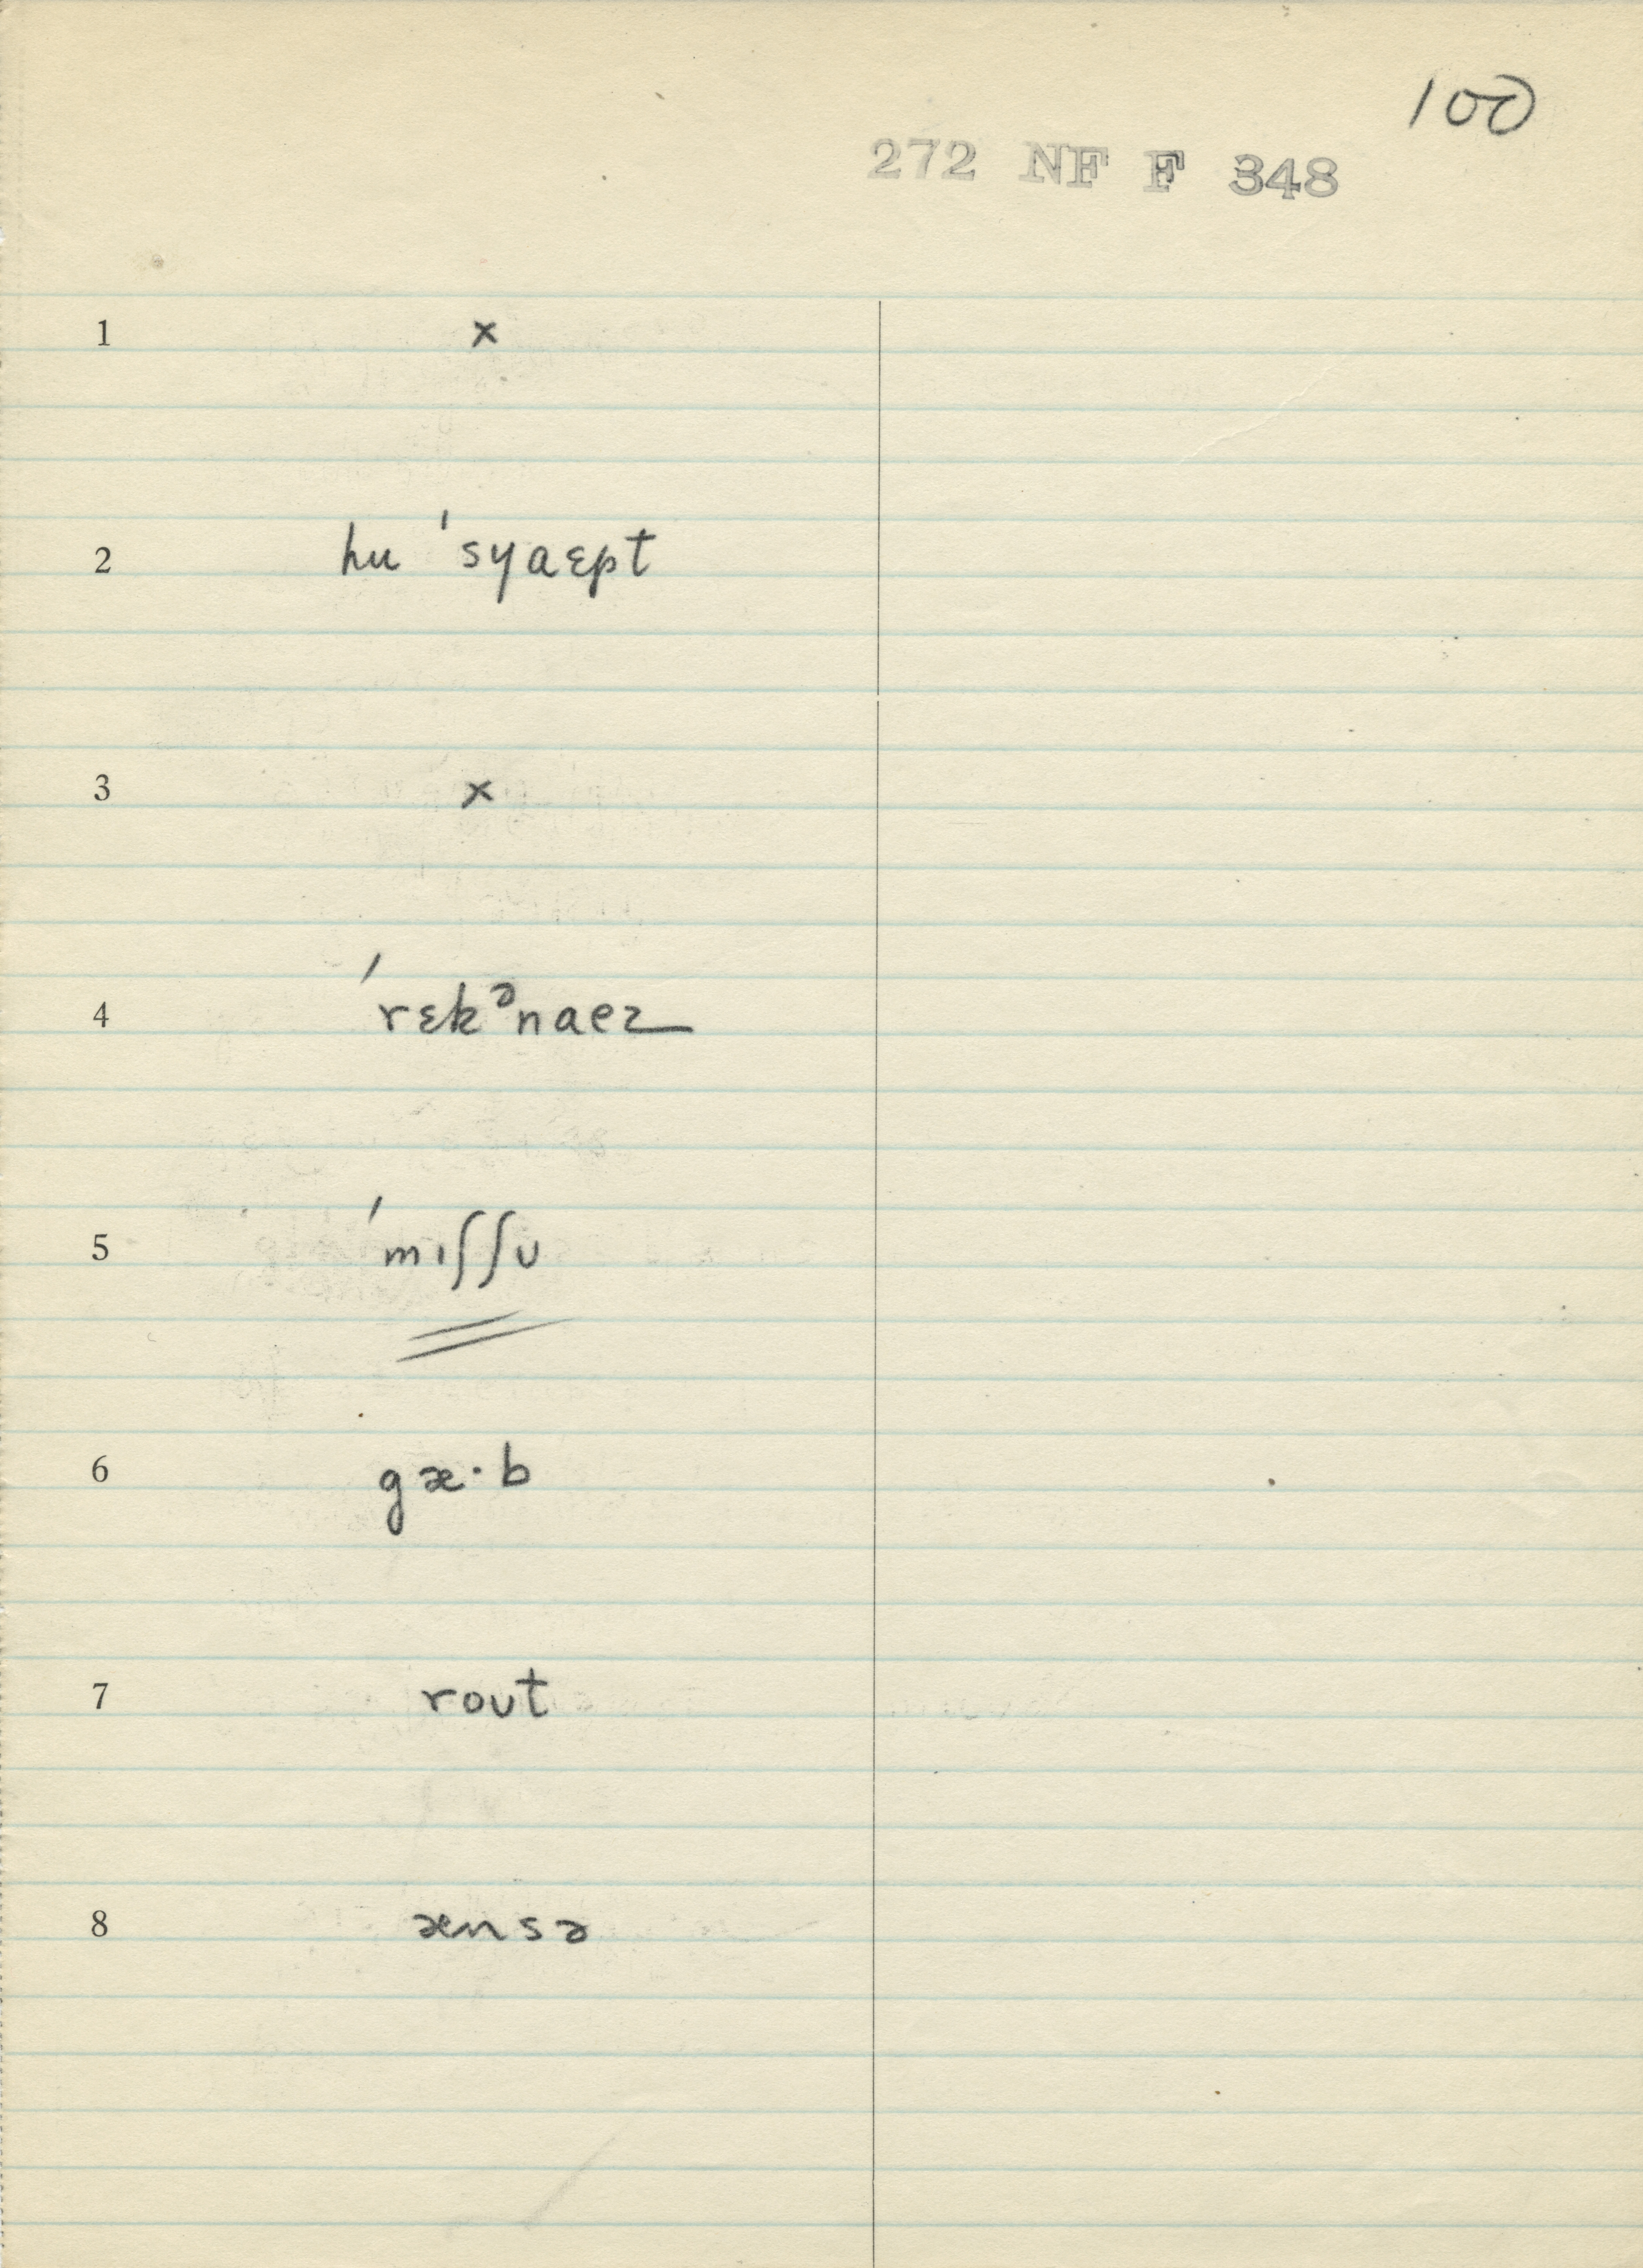 100
272 NF F 348
1 x
2 hu ˈsyaɛpt
3 x
4 ˈrɛkᵊnaez
5 ˈmɪʃʃʊ
6 gæ·b
7 roʊt
8 ænsə